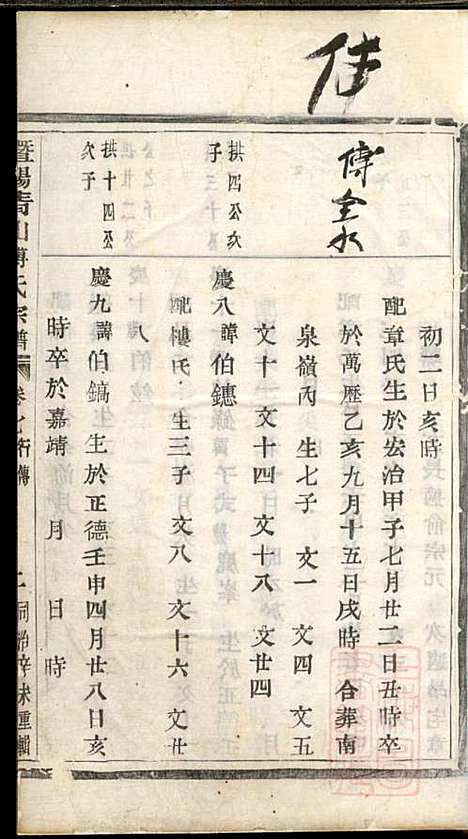 傅全水
初二日亥時
配章氏生於宏治甲子七月廿二日丑時卒
於萬歷乙亥九月十五日戌時 合葬南
泉嶺內 生七子 文一 文四 文五
文十一 文十四 文十八 文廿四
拱四公次
子
慶八諱伯鏸
配樓氏 生三子 文八 文十六 文廿
八
拱十四公
次子
慶九諱伯鎬 生於正德壬申四月廿八日亥
時卒於嘉靖 月 日 時
暨陽青山傅氏宗譜 卷 行傳
同治辛未重輯